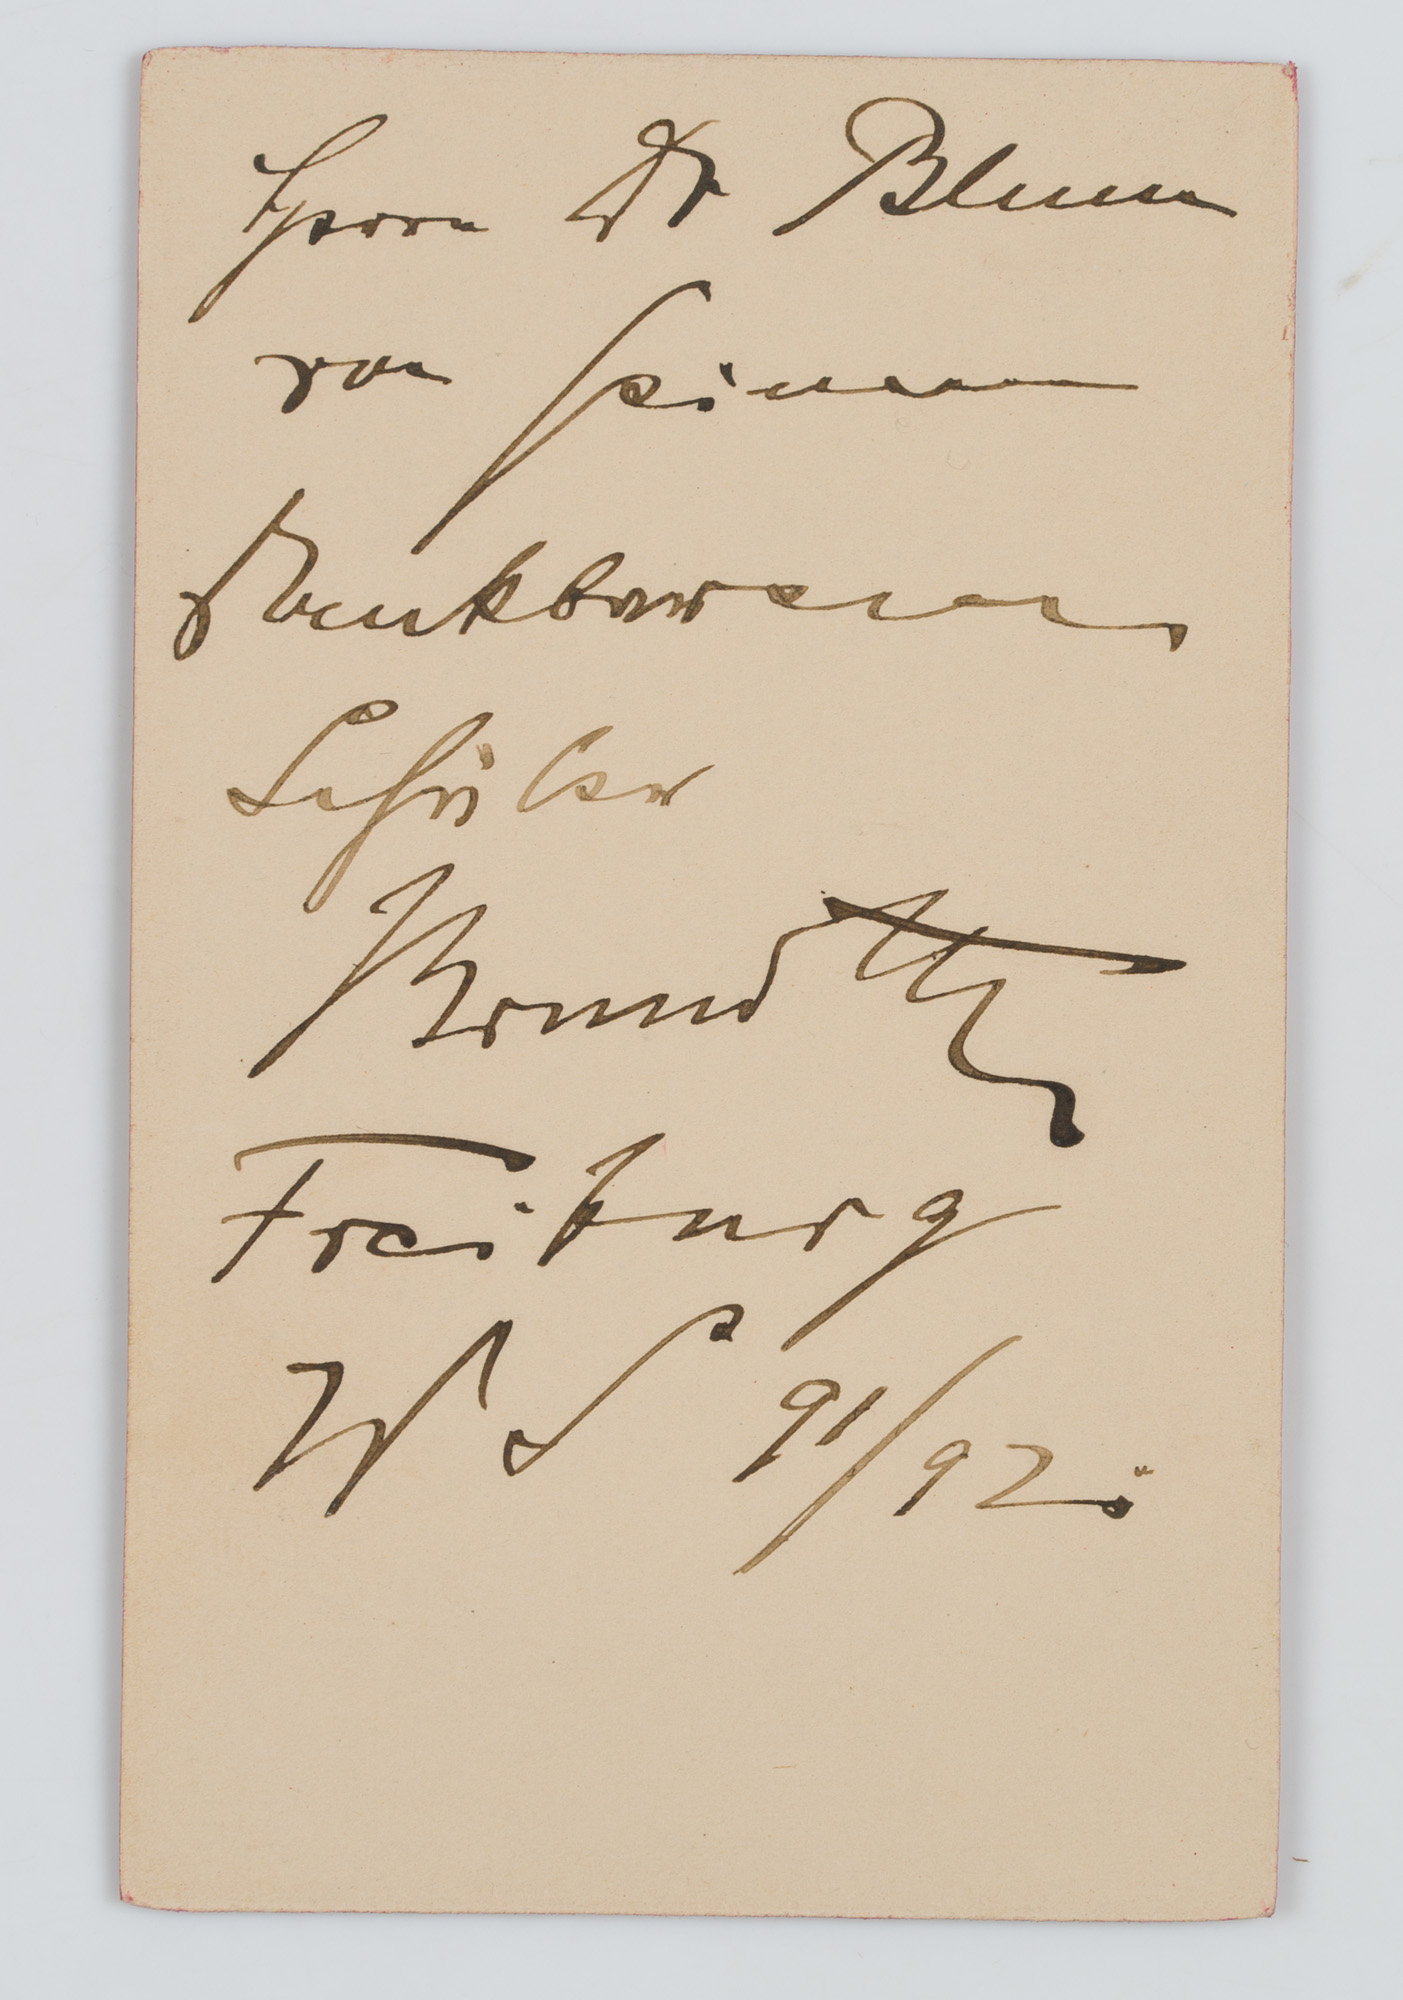 Herrn Dr Blum
von seinem
dankbaren
Schüler
Freiburg
WS 91/92.